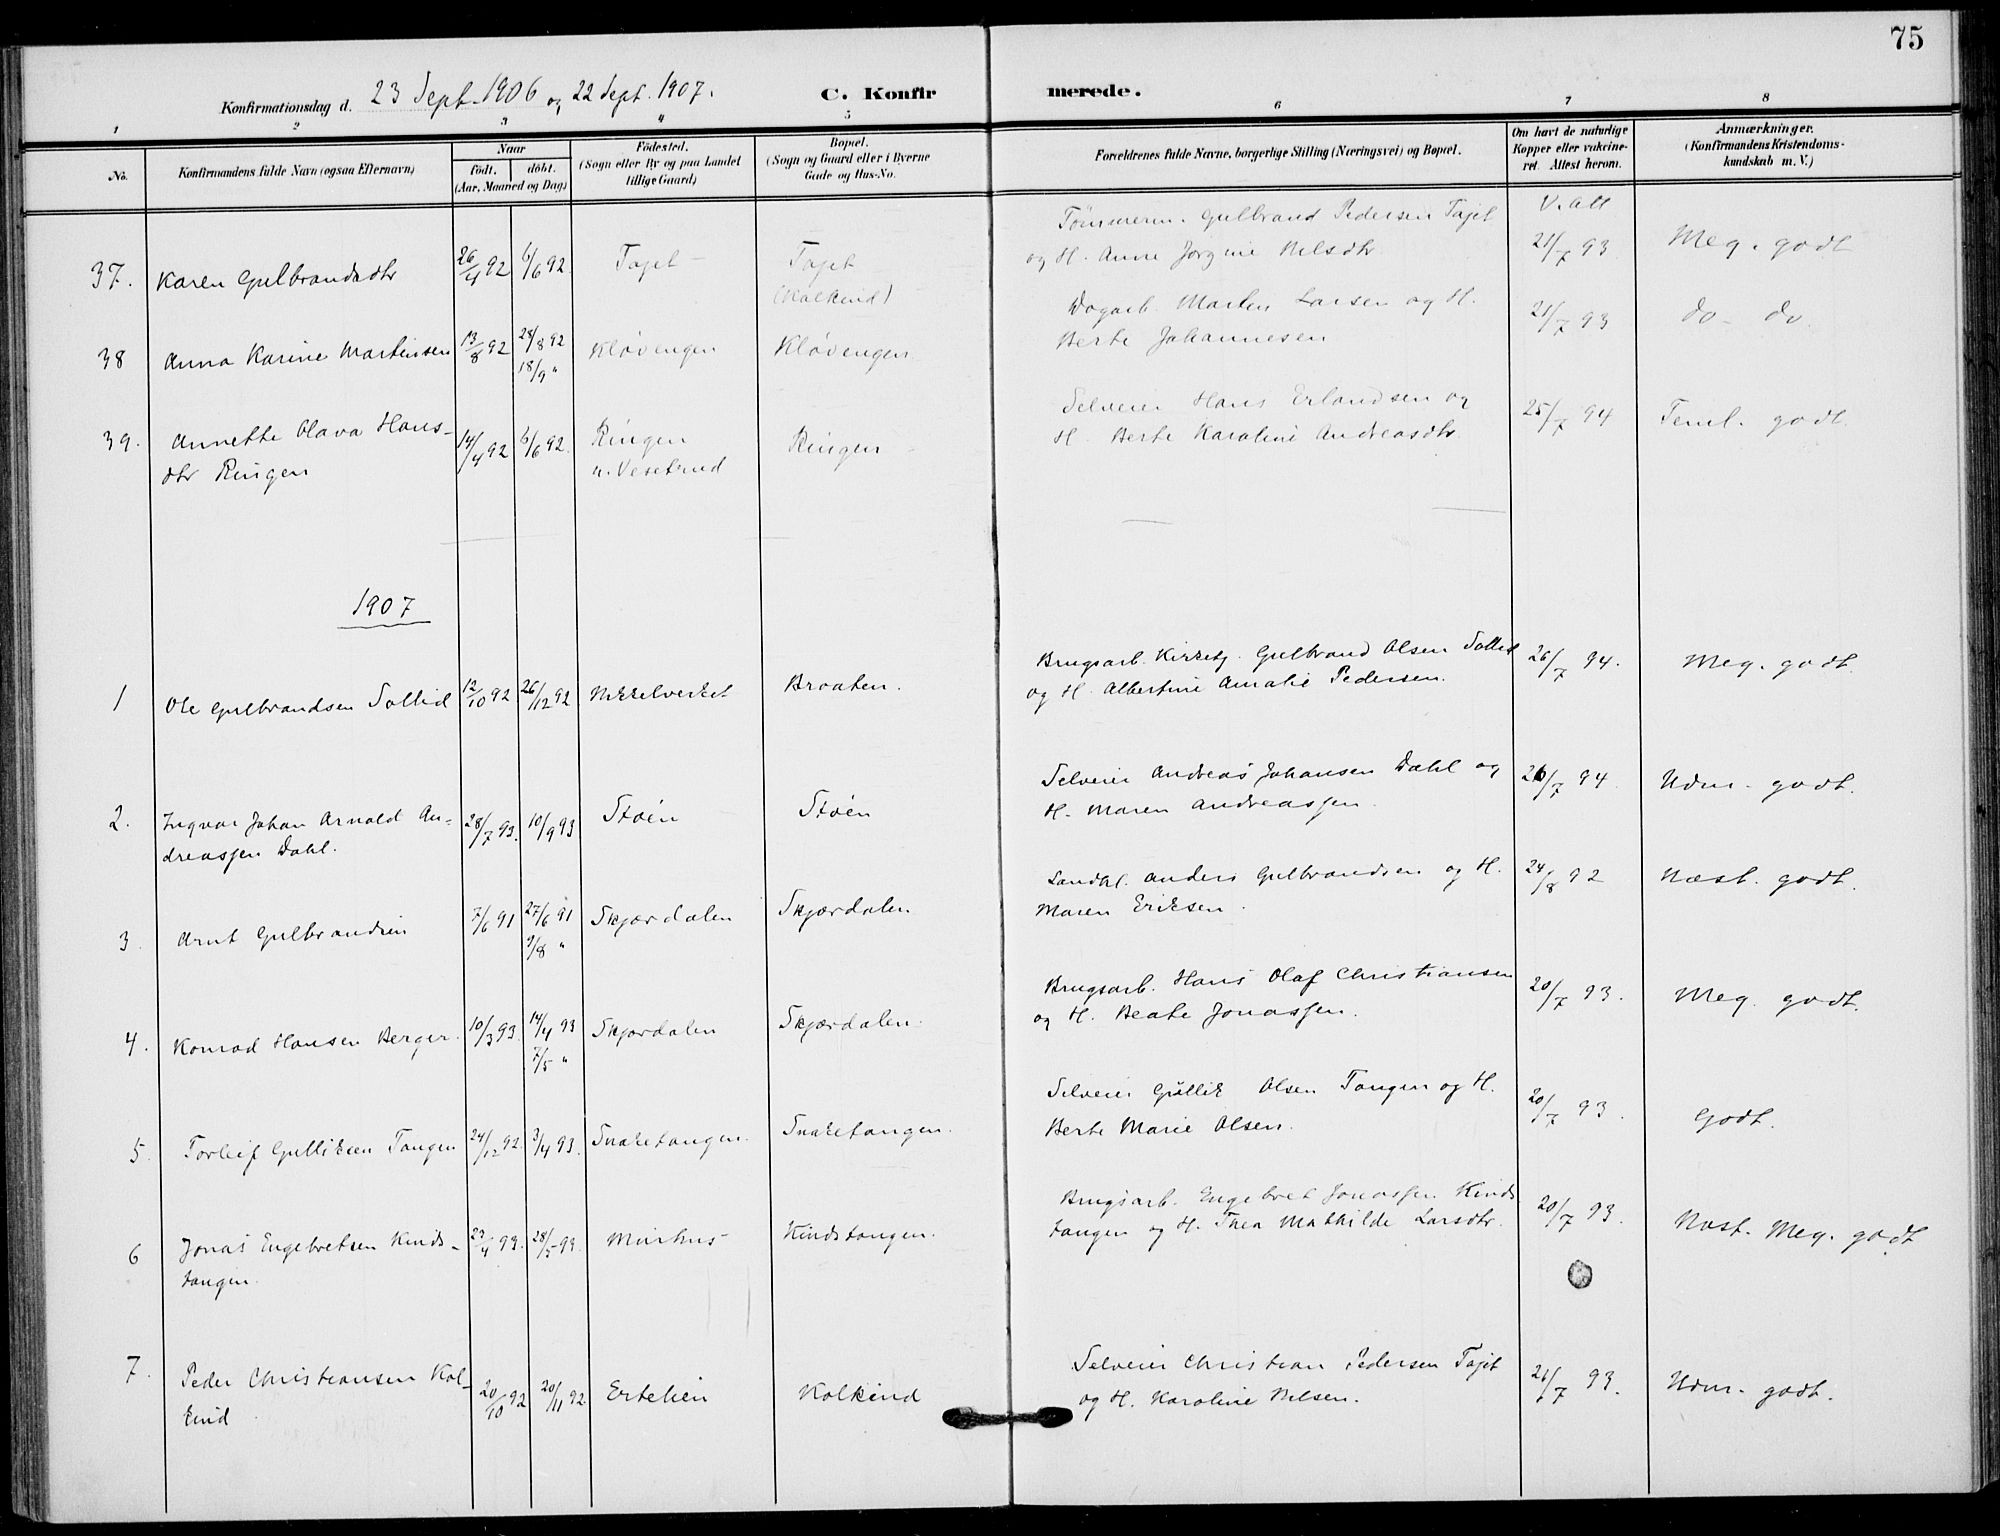 75
Konfirmationsdag d. 23 Sept. 1906 og 22 Sept. 1907.
C. Konfirmerede.
1 2 3 4 5 6 7 8
No. Konfirmandens fulde Navn (ogsaa Efternavn) Naar födt. döbt. (Aar, Maaned og Dag) Födested. (Sogn eller By og paa Landet tillige Gaard) Bopæl. (Sogn og Gaard eller i Byerne Gade og Hus-No. Forældrenes fulde Navne, borgerlige Stilling (Næringsvei) og Bopæl. Om havt de naturlige Kopper eller vakcineret. Attest herom. Anmærkninger. (Konfirmandens Kristendomskundskab m. V.)
V. Att
Tömmerm. Gulbrand Pedersen Tajet
37. Karen Gulbrandsdtr 26/4 92 6/6 92 Tajet Tajet og H. Anne Jörgine Nilsdtr 21/7 93 Meg. godt
(Kolkind)
Dagarb. Martin Larsen og H.
38 Anna Karine Martinsen 13/8 92 28/8 92 Klövengen Klövengen Berte Johannesen 21/7 93 do do.
18/9 "
Selveier Hans Erlandsen og
39. Annette Olava Hans- 14/4 92 6/6 92 Ringen Ringen H. Berte Karoline Andreasdtr. 25/7 94 Teml. godt.
dtr Ringen u. Vesetrud
1907
Brugsarb. Kirketj. Gulbrand Olsen Sollid
1 Ole Gulbrandsen Sollid 12/10 92 26/12 92 Nikkelverket Braaten. og H. Albertine Amalie Pedersen. 26/7 94. Meg. godt.
Selveier Andreas Johansen Dahl og
2. Ingvar Johan Arnold An- 28/7 93. 10/9 93 Støen Støen H. Maren Andreassen. 26/7 94 Udm. godt.
dreassen Dahl.
Landhl. Anders Gulbrandsen og H.
3 Arnt Gulbrandsen 7/6 91 27/6 91 Skjærdalen Skjærdalen Maren Eriksen. 24/8 92 Næst. godt.
9/8 "
Brugsarb. Hans Olaf Christiansen
4. Konrad Hansen Berger. 10/3 93. 14/4 93 Skjærdalen Skjærdalen. og H. Beate Jonassen. 20/7 93. Meg. godt.
7/5 "
Selveier Gullik Olsen Tangen og H.
5. Torleif Gulliksen Tangen 24/12 92. 3/4 93. Snaretangen. Snaretangen. Berte Marie Olsen. 20/7 93. Godt.
Brugsarb. Engebret Jonassen Kinds
6 Jonas Engebretsen Kinds- 23/4 93. 28/5 93. Murhus Kindstangen. tangen og H. Thea Mathilde Larsdtr. 20/7 93. Næst. Meg. godt
tangen.
Selveier Christian Pedersen Tajet
7. Peder Christiansen Kol- 20/10 92 20/11 92. Ertelien Kolkind og H. Karoline Nilsen. 21/7 93. Udm. godt.
kind